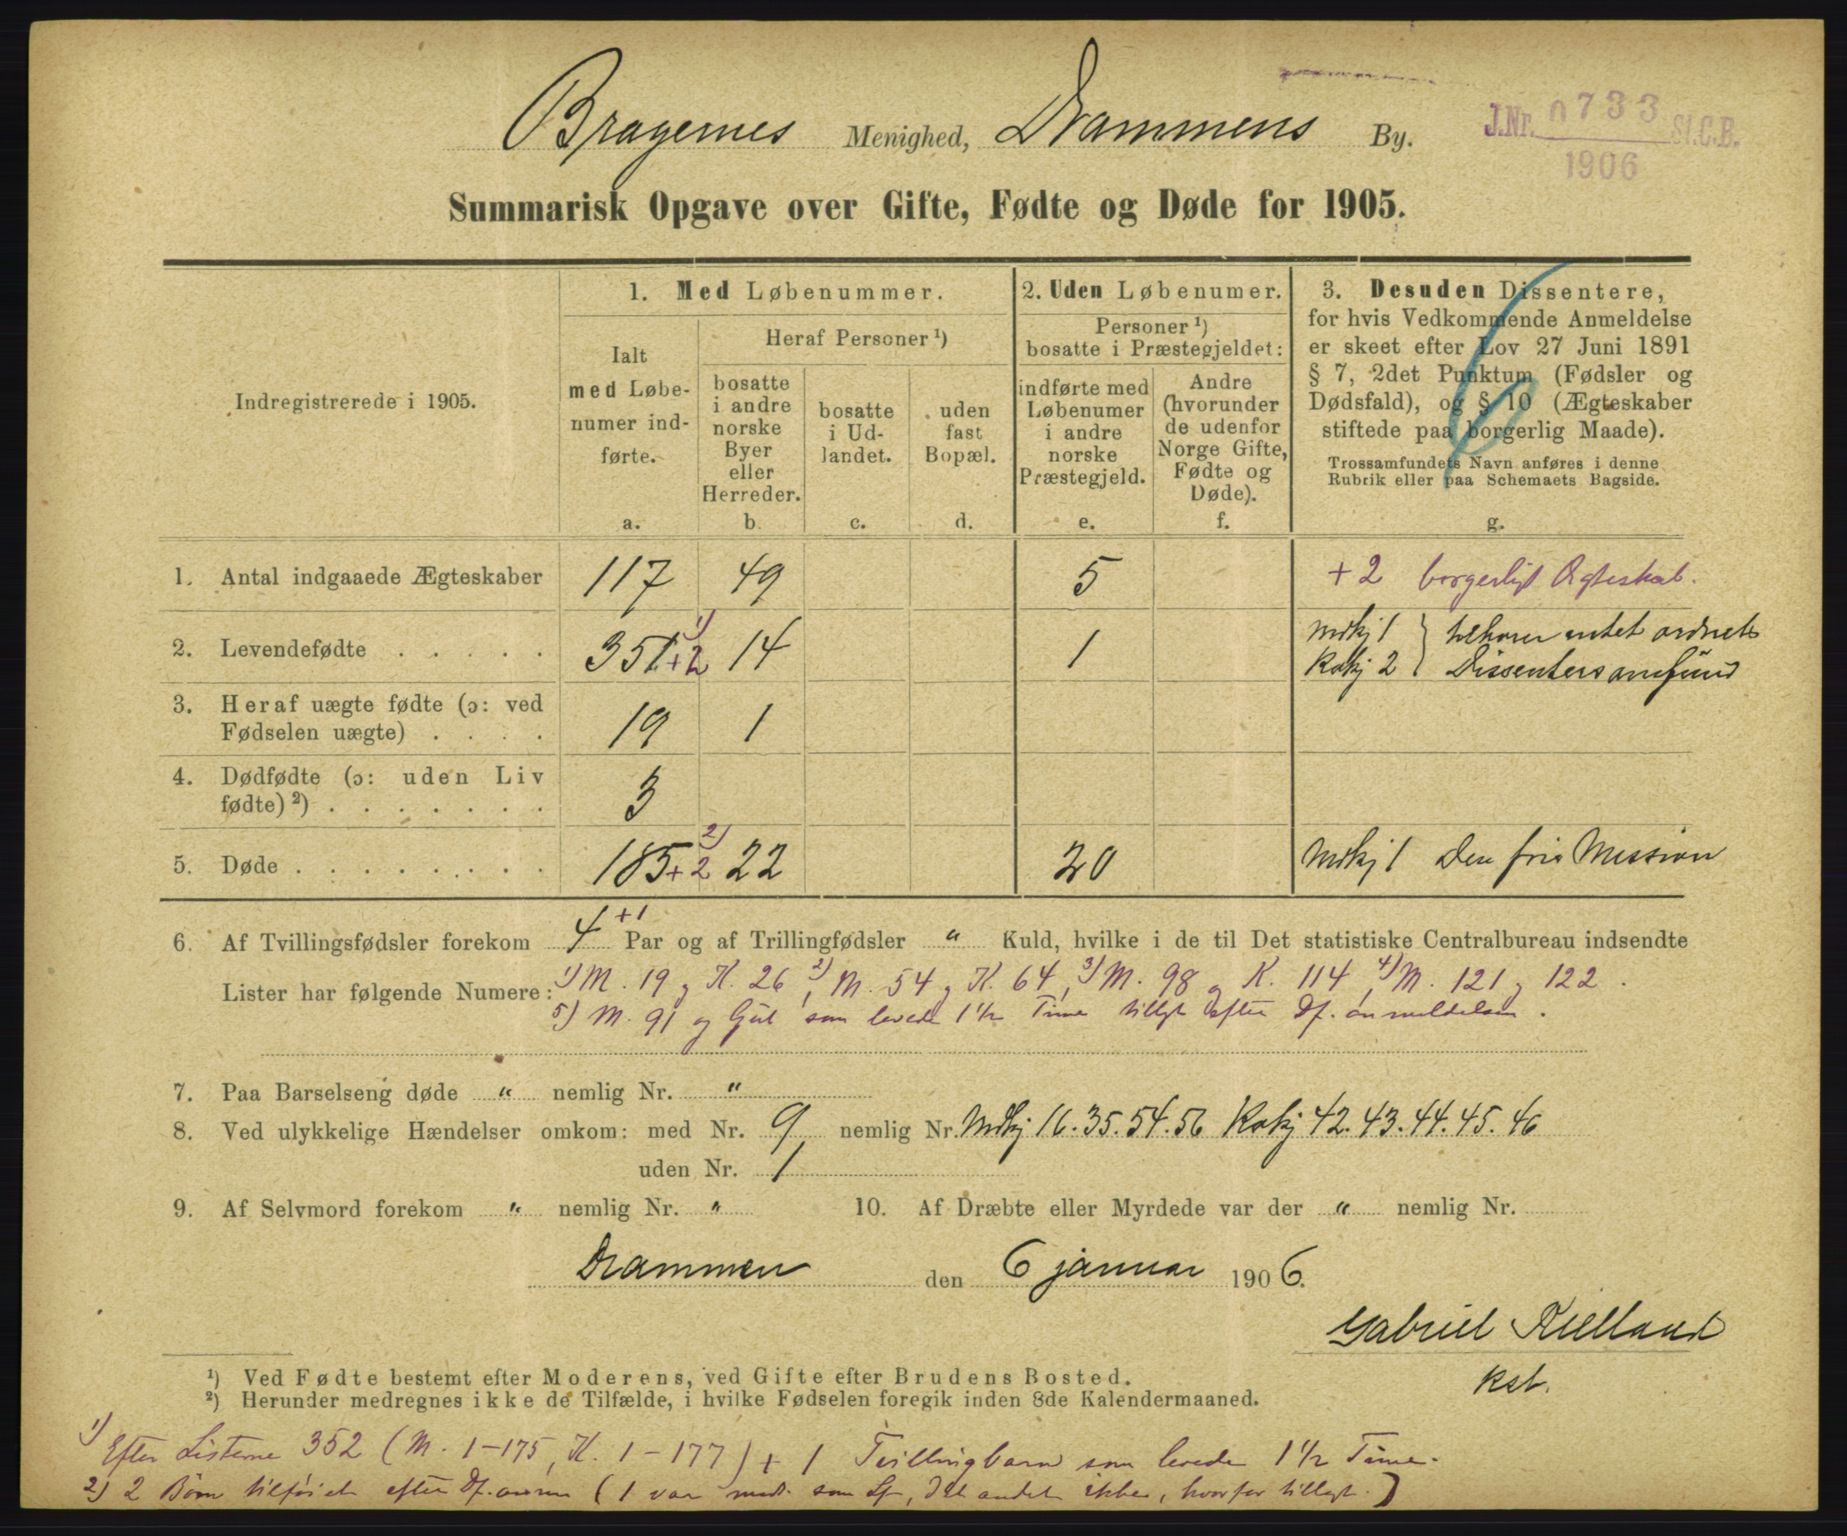 Bragernes Menighed, Drammens By.
J.Nr. 0733 St.C.B.
1906
Summarisk Opgave over Gifte, Fødte og Døde for 1905.
Indregistrerede i 1905.
1. Med Løbenummer.
Ialt med Løbenumer indførte.
a.
Heraf Personer ¹)
bosatte i andre norske Byer eller Herreder.
b.
bosatte i Udlandet.
c.
uden fast Bopæl.
d.
2. Uden Løbenumer.
Personer ¹)
bosatte i Præstegjeldet:
indførte med Løbenumer i andre norske Præstegjeld.
e.
Andre (hvorunder de udenfor Norge Gifte, Fødte og Døde).
f.
3. Desuden Dissentere,
for hvis Vedkommende Anmeldelse
er skeet efter Lov 27 Juni 1891
§ 7, 2det Punktum (Fødsler og
Dødsfald), og § 10 (Ægteskaber
stiftede paa borgerlig Maade).
Trossamfundets Navn anføres i denne
Rubrik eller paa Schemaets Bagside.
g.
1. Antal indgaaede Ægteskaber 117 49 5 + 2 borgerligt Ægteskab.
2. Levendefødte . . . . . 351 + 2 ¹) 14 1 Mdkj 1 } tilhører intet ordnet
Kvkj 2 } Dissentersamfund
3. Heraf uægte fødte (ɔ: ved
Fødselen uægte) . . . . 19 1
4. Dødfødte (ɔ: uden Liv
fødte) ²) . . . . . . . 3
5. Døde . . . . . . . . 185 + 2 ²) 22 20 Mdkj 1 Den frie Mission
6. Af Tvillingsfødsler forekom 4 +1 Par og af Trillingfødsler " Kuld, hvilke i de til Det statistiske Centralbureau indsendte
Lister har følgende Numere: ¹) M. 19 og K. 26, ²) M. 54 og K. 64, ³) M. 98 og K. 114, ⁴) M. 121 og 122.
5) M. 91 og Gut som levede 1½ Time tillagt efter Df. anmeldelsen.
7. Paa Barselseng døde " nemlig Nr. "
8. Ved ulykkelige Hændelser omkom: med Nr. 9 nemlig Nr. Mdkj 16. 35. 54. 56 Kvkj 42. 43. 44. 45. 46
uden Nr. 1
9. Af Selvmord forekom " nemlig Nr. " 10. Af Dræbte eller Myrdede var der " nemlig Nr.
Drammen den 6 januar 1906.
Gabriel Kielland
Kst.
¹) Ved Fødte bestemt efter Moderens, ved Gifte efter Brudens Bosted.
²) Herunder medregnes ikke de Tilfælde, i hvilke Fødselen foregik inden 8de Kalendermaaned.
¹) Efter Listerne 352 (M. 1-175, K. 1-177) + 1 Tvillingbarn som levede 1½ Time.
2) 2 Børn tilføiet efter Df. anm (1 var med. som , det andet ikke, hvorfor tillagt.)